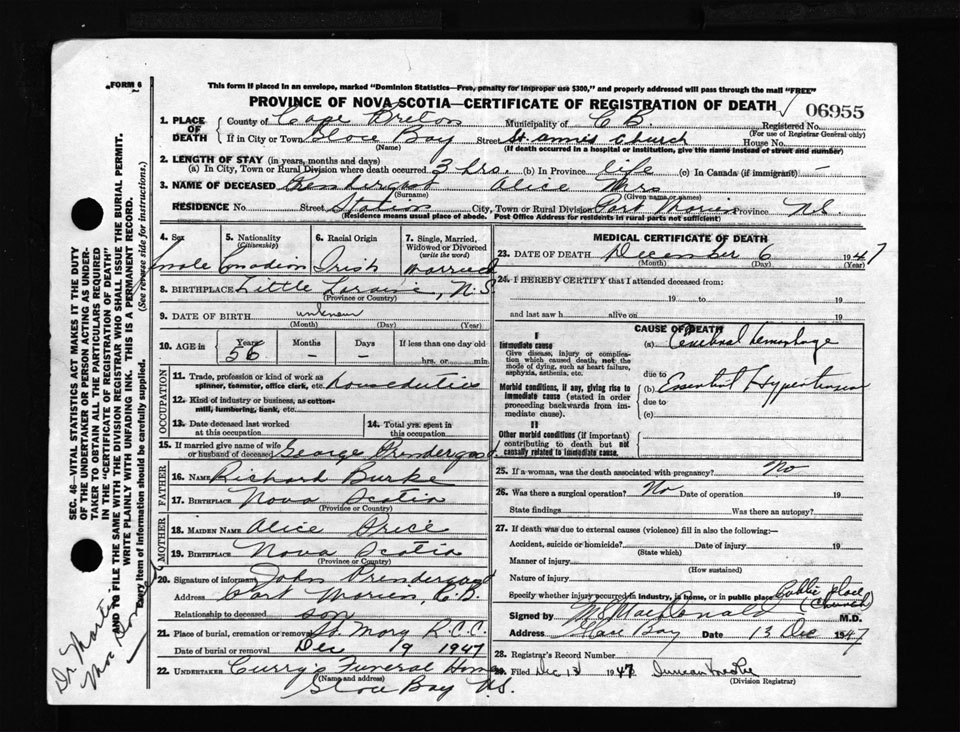 FORM 6
This form if placed in an envelope, marked "Dominion Statistics—Free, penalty for improper use $300," and properly addressed will pass through the mail "FREE"
PROVINCE OF NOVA SCOTIA—CERTIFICATE OF REGISTRATION OF DEATH
06955
1. PLACE OF DEATH
County of Cape Breton Municipality of C B Registered No.
(For use of Registrar General only)
If in City or Town Glace Bay Street St. Annis Church House No.
(Name) (If death occurred in a hospital or institution, give the name instead of street and number)
2. LENGTH OF STAY (in years, months and days)
(a) In City, Town or Rural Division where death occurred 3 hrs. (b) In Province life (c) In Canada (if immigrant) —
3. NAME OF DECEASED Prendergast Alice Mrs
(Surname) (Given name or names)
RESIDENCE No. Street Station City, Town or Rural Division Port Morien Province N.S.
(Residence means usual place of abode. Post Office Address for residents in rural parts not sufficient)
4. Sex 5. Nationality (Citizenship) 6. Racial Origin 7. Single, Married, Widowed or Divorced (write the word)
Female Canadian Irish Married
8. BIRTHPLACE Little Loraine, N.S
(Province or Country)
9. DATE OF BIRTH unknown
(Month) (Day) (Year)
10. AGE in Years Months Days If less than one day old
56 – – hrs. or min.
OCCUPATION
11. Trade, profession or kind of work as spinner, teamster, office clerk, etc. Houseduties
12. Kind of industry or business, as cotton-mill, lumbering, bank, etc.
13. Date deceased last worked at this occupation 14. Total yrs. spent in this occupation
15. If married give name of wife or husband of deceased George Prendergast
FATHER
16. NAME Richard Burke
17. BIRTHPLACE Nova Scotia
(Province or Country)
MOTHER
18. MAIDEN NAME Alice Price
19. BIRTHPLACE Nova Scotia
(Province or Country)
20. Signature of informant John Prendergast
Address Port Morien, C.B.
Relationship to deceased son
21. Place of burial, cremation or removal St. Mary R.C.C.
Date of burial or removal Dec 9 1947
22. UNDERTAKER Curry's Funeral Home
(Name and address)
Glace Bay N.S.
MEDICAL CERTIFICATE OF DEATH
23. DATE OF DEATH December 6 1947
(Month) (Day) (Year)
24. I HEREBY CERTIFY that I attended deceased from:
19 to 19
and last saw h alive on 19
CAUSE OF DEATH
I
Immediate cause
Give disease, injury or complication which caused death, not the mode of dying, such as heart failure, asphyxia, asthenia, etc.
(a) Cerebral hemorhage
due to
Morbid conditions, if any, giving rise to immediate cause (stated in order proceeding backwards from immediate cause).
(b) Essential Hypertension
due to
(c)
II
Other morbid conditions (if important) contributing to death but not causally related to immediate cause.
25. If a woman, was the death associated with pregnancy? No
26. Was there a surgical operation? No Date of operation 19
State findings Was there an autopsy?
27. If death was due to external causes (violence) fill in also the following:—
Accident, suicide or homicide? Date of injury 19
(State which)
Manner of injury
(How sustained)
Nature of injury
Specify whether injury occurred in industry, in home, or in public place Public place (Church)
Signed by M. MacDonald M.D.
Address Glace Bay Date 13 Dec 1947
28. Registrar's Record Number
29. Filed Dec 13 1947 Duncan
(Division Registrar)
SEC. 46—VITAL STATISTICS ACT MAKES IT THE DUTY
OF THE UNDERTAKER OR PERSON ACTING AS UNDER-
TAKER TO OBTAIN ALL THE PARTICULARS REQUIRED
IN THE "CERTIFICATE OF REGISTRATION OF DEATH"
AND TO FILE THE SAME WITH THE DIVISION REGISTRAR WHO SHALL ISSUE THE BURIAL PERMIT.
WRITE PLAINLY WITH UNFADING INK. THIS IS A PERMANENT RECORD.
Every item of information should be carefully supplied. (See reverse side for instructions.)
Dr Martin